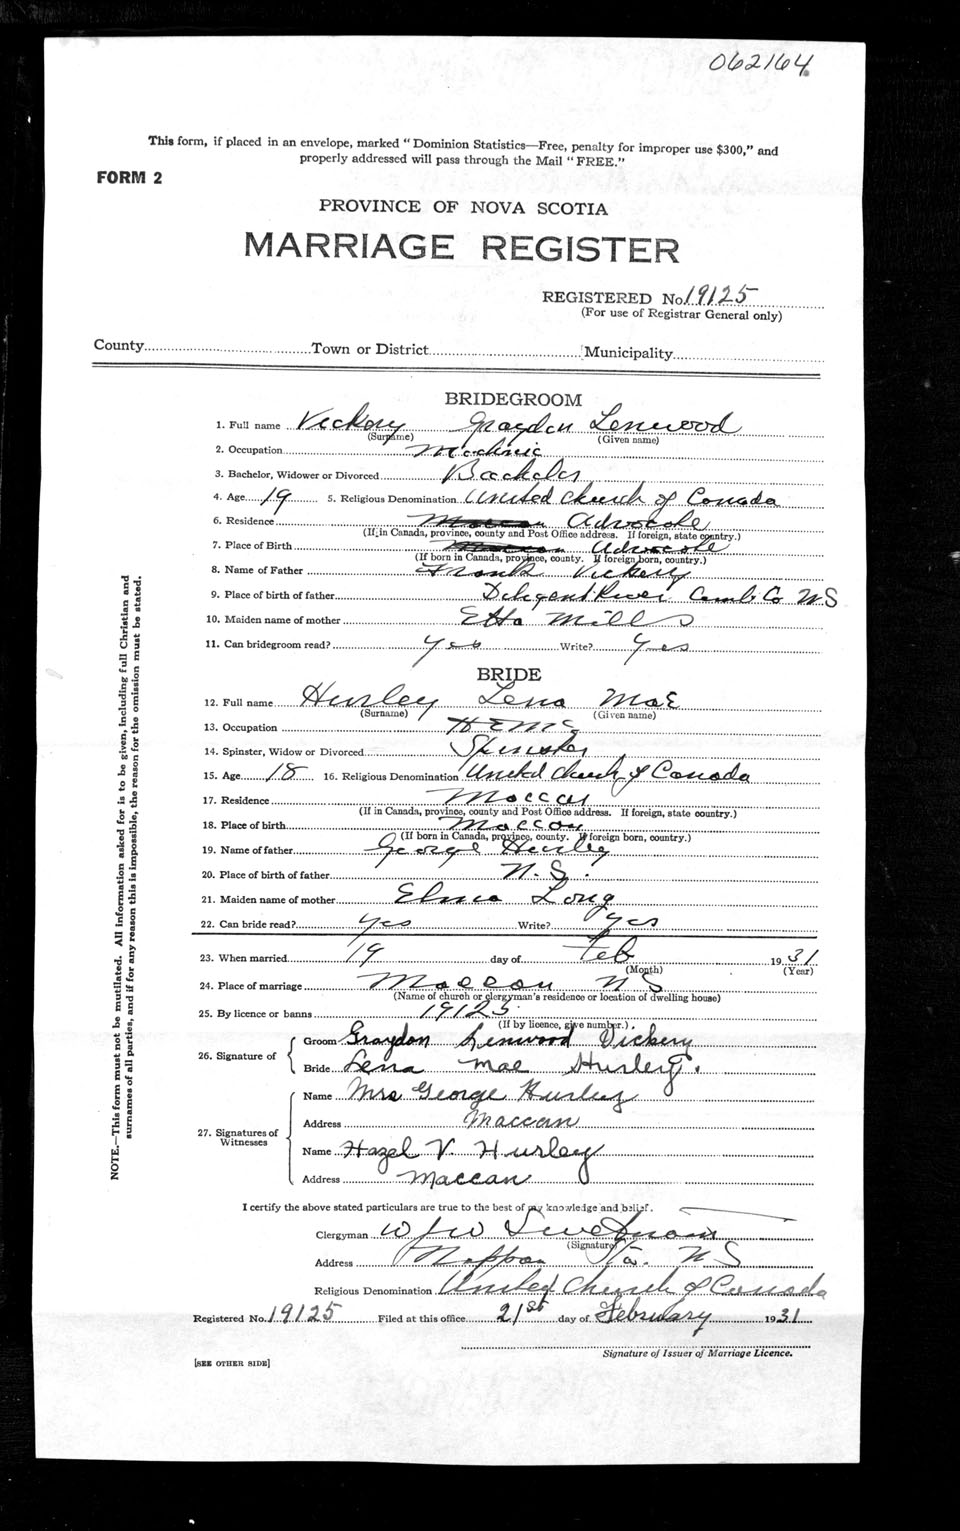 062164
This form, if placed in an envelope, marked "Dominion Statistics—Free, penalty for improper use $300," and
properly addressed will pass through the Mail "FREE."
FORM 2
PROVINCE OF NOVA SCOTIA
MARRIAGE REGISTER
REGISTERED No. 19125
(For use of Registrar General only)
County Town or District Municipality
BRIDEGROOM
1. Full name Vickery Graydon Lenwood
(Surname) (Given name)
2. Occupation Mechnic
3. Bachelor, Widower or Divorced Bachelor
4. Age 19 5. Religious Denomination United Church of Canada
6. Residence Maccan Advocate
(If in Canada, province, county and Post Office address. If foreign, state country.)
7. Place of Birth Maccan Advocate
(If born in Canada, province, county. If foreign born, country.)
8. Name of Father Frank Vickery
9. Place of birth of father Diligent River Cumb. Co N.S
10. Maiden name of mother Etta Mills
11. Can bridegroom read? Yes Write? Yes
BRIDE
12. Full name Hurley Lena Mae
(Surname) (Given name)
13. Occupation Home
14. Spinster, Widow or Divorced Spinster
15. Age 18 16. Religious Denomination United Church of Canada
17. Residence Maccan
(If in Canada, province, county and Post Office address. If foreign, state country.)
18. Place of birth Maccan
(If born in Canada, province, county. If foreign born, country.)
19. Name of father George Hurley
20. Place of birth of father N.S.
21. Maiden name of mother Elma Long
22. Can bride read? Yes Write? Yes
23. When married 19 day of Feb 1931
(Month) (Year)
24. Place of marriage Maccan N S
(Name of church or clergyman's residence or location of dwelling house)
25. By licence or banns 19125
(If by licence, give number.)
26. Signature of Groom Graydon Lenwood Vickery
Bride Lena Mae Hurley.
27. Signatures of Witnesses Name Mrs George Hurley
Address Maccan
Name Hazel V. Hurley
Address Maccan
I certify the above stated particulars are true to the best of my knowledge and belief.
Clergyman W J W
(Signature)
Address Nappan Sta. N S
Religious Denomination United Church of Canada
Registered No. 19125 Filed at this office 21st day of February 1931
Signature of Issuer of Marriage Licence.
[SEE OTHER SIDE]
NOTE.—This form must not be mutilated. All information asked for is to be given, including full Christian and
surnames of all parties, and if for any reason this is impossible, the reason for the omission must be stated.